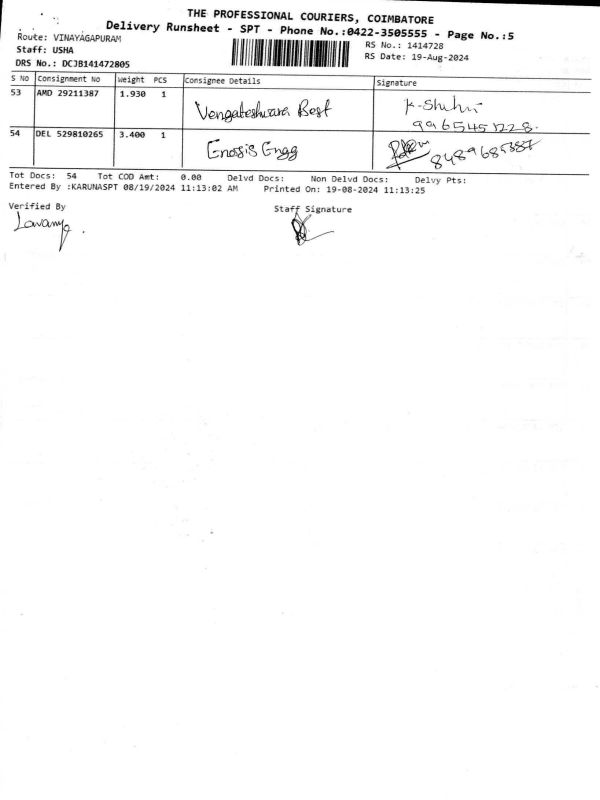 THE PROFESSIONAL COURIERS, COIMBATORE
Delivery Runsheet - SPT - Phone No.:0422-3505555 - Page No.:5
Route: VINAYAGAPURAM
Staff: USHA
DRS No.: DCJB141472805
RS No.: 1414728
RS Date: 19-Aug-2024
S No Consignment No Weight PCS Consignee Details Signature
53 AMD 29211387 1.930 1 Vengateshwara Best
9965451228.
54 DEL 529810265 3.400 1 Enossis Engg 8489685387
Tot Docs: 54 Tot COD Amt: 0.00 Delvd Docs: Non Delvd Docs: Delvy Pts:
Entered By :KARUNASPT 08/19/2024 11:13:02 AM Printed On: 19-08-2024 11:13:25
Verified By Staff Signature
Lavanya